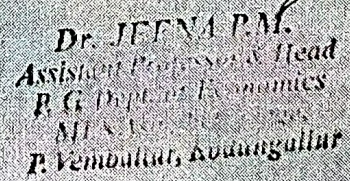 Dr. JEENA P.M.
Assistant Professor & Head
P. G. Dept. of Economics
MES
P. Vemballur, Kodungallur